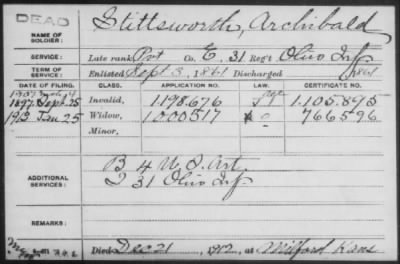 DEAD
NAME OF SOLDIER: Stittsworth, Archibald
SERVICE: Late rank Pvt Co. E, 31 Reg't Ohio Inf
TERM OF SERVICE: Enlisted Sept 3, 1861 Discharged , 1861
DATE OF FILING. CLASS. APPLICATION NO. LAW. CERTIFICATE NO.
1897 Sept 25 Invalid, 1.198.676 1.105.895
1913 Jan 25 Widow, 1000517 766596
Minor,
ADDITIONAL SERVICES: B 4 U S Art
I 31 Ohio Inf
REMARKS:
Died Dec 21, 1912, at Milford Kans